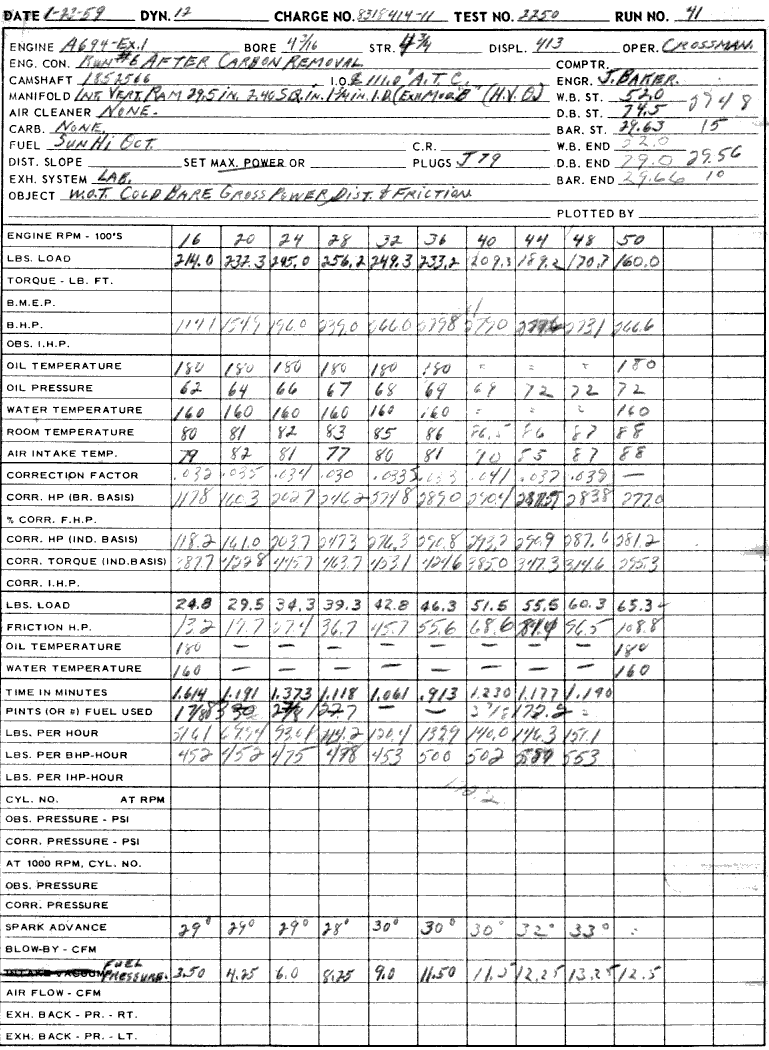 DATE 1-23-59 DYN. 12 CHARGE NO. 8318414-11 TEST NO. 2250 RUN NO. 41
ENGINE A694-Ex.1 BORE 4 3/16 STR. 4 3/4 DISPL. 413 OPER. CROSSMAN.
ENG. CON. RUN #6 AFTER CARBON REMOVAL COMPTR.
CAMSHAFT 1852566 I.O. @ 111.0 A.T.C. ENGR. J. BAKER.
MANIFOLD INT. VERT. RAM 29.5 IN. 2.40 SQ. IN. I.D. (EXH MOD. "B" (H.V.B.) W.B. ST. 52.0 2948
AIR CLEANER NONE. D.B. ST. 74.5
CARB. NONE. BAR. ST. 29.63 15
FUEL SUN HI OCT. C.R. W.B. END 52.0
DIST. SLOPE SET MAX. POWER OR PLUGS J79 D.B. END 79.0 29.56
EXH. SYSTEM LAB. BAR. END 29.66 10
OBJECT W.O.T. COLD BARE GROSS POWER, DIST. & FRICTION
PLOTTED BY
ENGINE RPM - 100'S 16 20 24 28 32 36 40 44 48 50
LBS. LOAD 214.0 232.3 245.0 256.2 249.3 233.2 209.3 189.2 170.7 160.0
TORQUE - LB. FT.
B.M.E.P.
B.H.P. 114.1 154.9 196.0 239.0 266.0 279.8 279.0 277.6 273.1 266.6
OBS. I.H.P.
OIL TEMPERATURE 180 180 180 180 180 180 " " " 180
OIL PRESSURE 62 64 66 67 68 69 69 72 72 72
WATER TEMPERATURE 160 160 160 160 160 160 " " " 160
ROOM TEMPERATURE 80 81 82 83 85 86 86.5 86 87 88
AIR INTAKE TEMP. 79 82 81 77 80 81 90 85 87 88
CORRECTION FACTOR .032 .035 .034 .030 .0335 .033 .041 .037 .039 —
CORR. HP (BR. BASIS) 117.8 160.3 202.7 246.2 274.8 289.0 290.4 287.5 283.8 277.0
% CORR. F.H.P.
CORR. HP (IND. BASIS) 118.2 161.0 203.7 247.3 276.3 290.8 293.2 290.9 287.6 281.2
CORR. TORQUE (IND. BASIS) 387.7 422.8 445.7 463.7 453.1 424.6 385.0 347.3 314.6 295.3
CORR. I.H.P.
LBS. LOAD 24.8 29.5 34.3 39.3 42.8 46.3 51.5 55.5 60.3 65.3
FRICTION H.P. 13.2 19.7 27.4 36.7 45.7 55.6 68.6 81.4 96.5 108.8
OIL TEMPERATURE 180 — — — — — — — — 180
WATER TEMPERATURE 160 — — — — — — — — 160
TIME IN MINUTES 1.614 1.191 1.373 1.118 1.061 .913 1.230 1.177 1.190
PINTS (OR #) FUEL USED — —
LBS. PER HOUR 51.61 69.94 93.01 114.2 120.4 139.9 140.0 146.3 151.1
LBS. PER BHP-HOUR 452 452 475 478 453 500 502 553
LBS. PER IHP-HOUR
CYL. NO. AT RPM
OBS. PRESSURE - PSI
CORR. PRESSURE - PSI
AT 1000 RPM, CYL. NO.
OBS. PRESSURE
CORR. PRESSURE
SPARK ADVANCE 29° 29° 29° 28° 30° 30° 30° 32° 33°
BLOW-BY - CFM
FUEL PRESSURE. 3.50 4.25 6.0 8.25 9.0 11.50 11.5 12.25 13.25 12.5
AIR FLOW - CFM
EXH. BACK - PR. - RT.
EXH. BACK - PR. - LT.